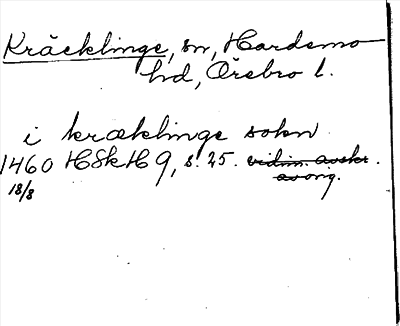 Kräcklinge, sn, Hardemo
hd, Örebro l.
i kræklinge sokn
1460 HSkH 9, s. 25. vidim. avskr.
18/8 av orig.